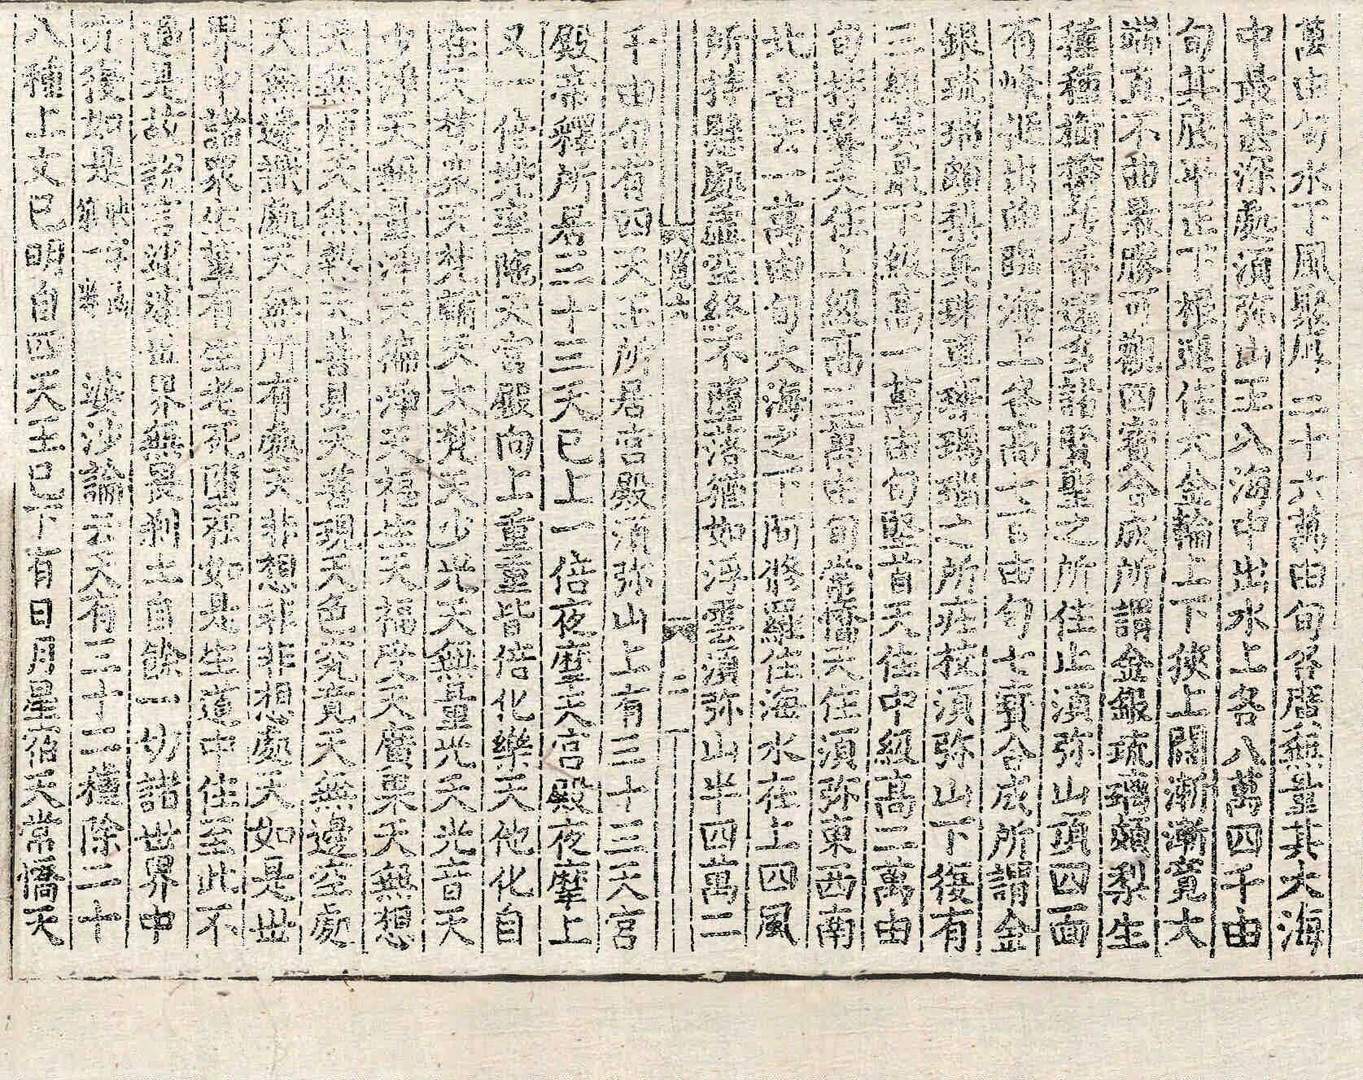 萬由旬水下風聚厚二十六萬由旬各曆無量其大海
中最甚深處湏弥山王入海中出水上各八萬四千由
旬其底平正下根連住大金輪上下狹上闊漸漸寬大
端直不曲最勝可觀四寳合成所謂金銀琉璃頗梨生
種種樹香遠諸賢聖之所住止湏弥山頂四面
有峰挺出曲臨海上各高七百由旬七寳合成所謂金
銀琉璃頗梨真珠車璖瑪瑙之所莊挍湏弥山下復有
三級其最下級高一萬由旬堅首天住中級高二萬由
旬持鬘天住上級高三萬由旬常憍天住湏弥東西南
北各去一萬由旬大海之下阿修羅住海水在上四風
所持懸處虛空終不墮落猶如浮雲湏弥山半四萬二
覽六 二
千由旬有四天王所居宮殿湏弥山上有三十三天宮
殿帝釋所居三十三天已上一倍夜摩天宮殿夜摩上
又一倍兠率陁天宮殿向上重重皆倍化樂天他化自
在天梵眾天梵輔天大梵天少光天無量光天光音天
少淨天無量淨天徧淨天福生天福受天廣果天無想
天無煩天無熱天善見天善現天色究竟天無邊空處
天無邊識處天無所有處天非想非非想處天如是世
界中諸眾生輩有生老死墮在如是生道中住至此不
過是故說言娑婆世界無畏剎土自餘一切諸世界中
亦復如是 婆沙論云天有三十二種除二十
八種上文已明自四天王已下有日月星宿天常憍天